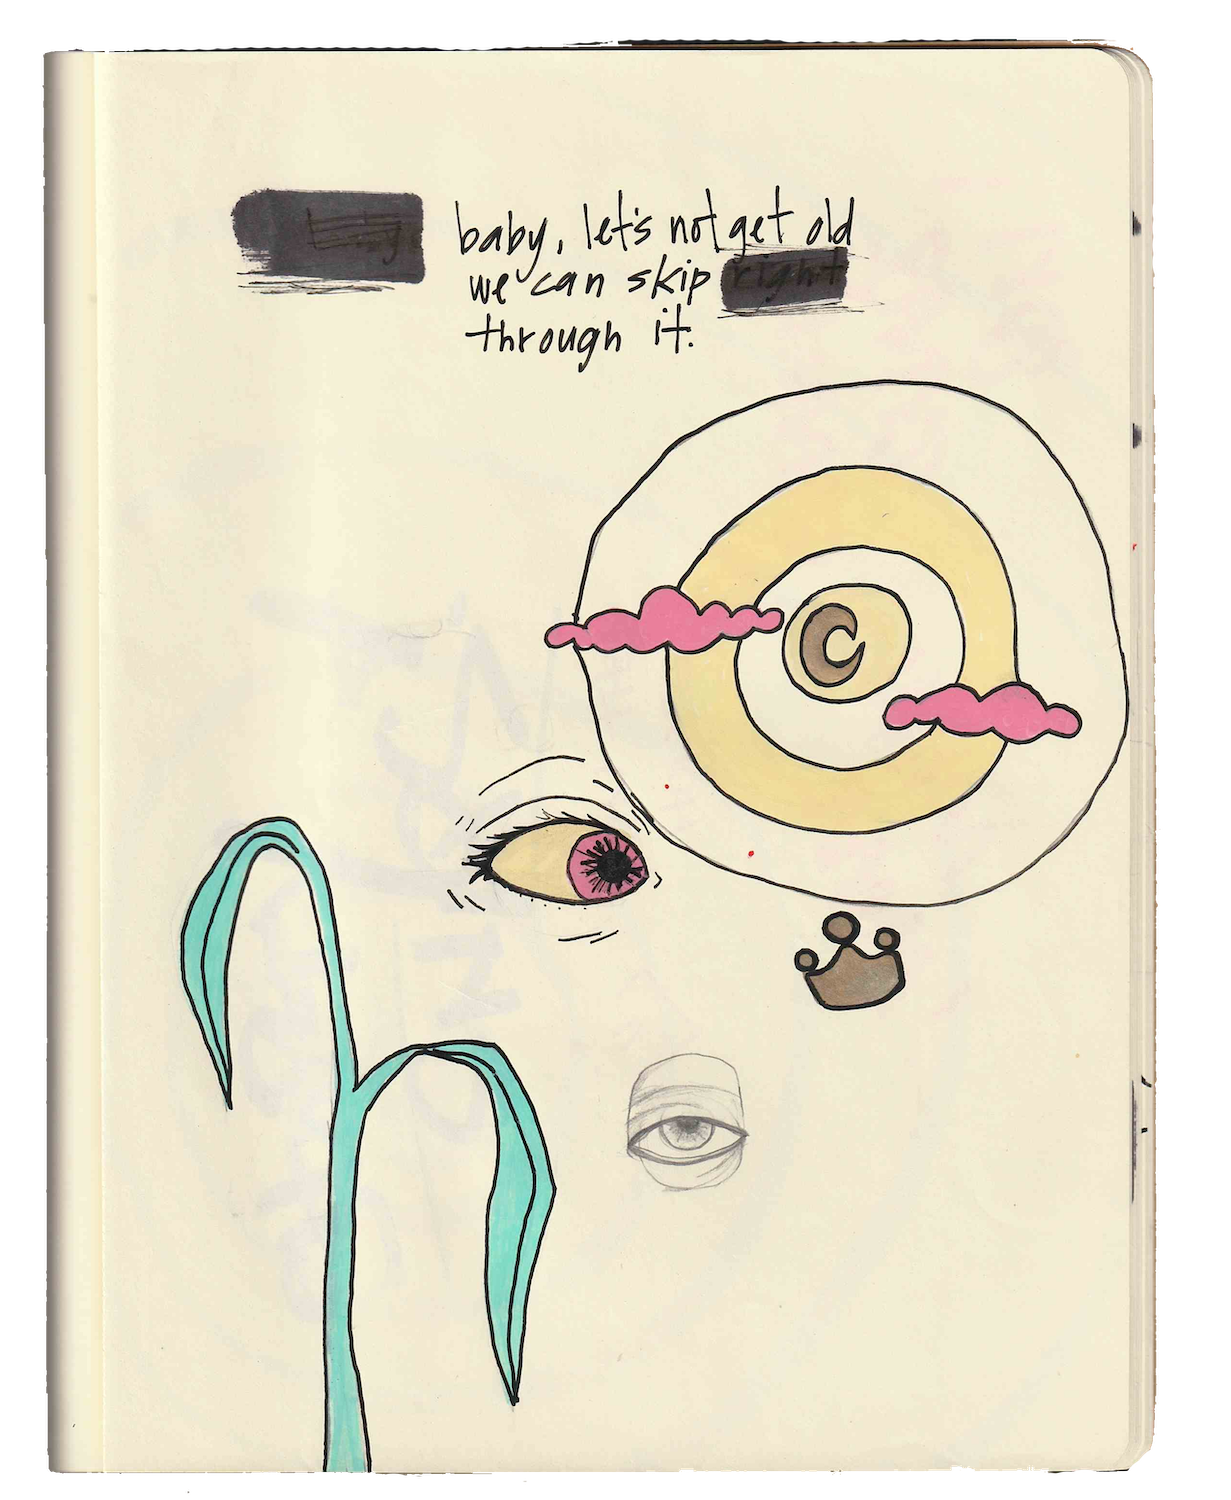 baby, let's not get old
we can skip right
through it.